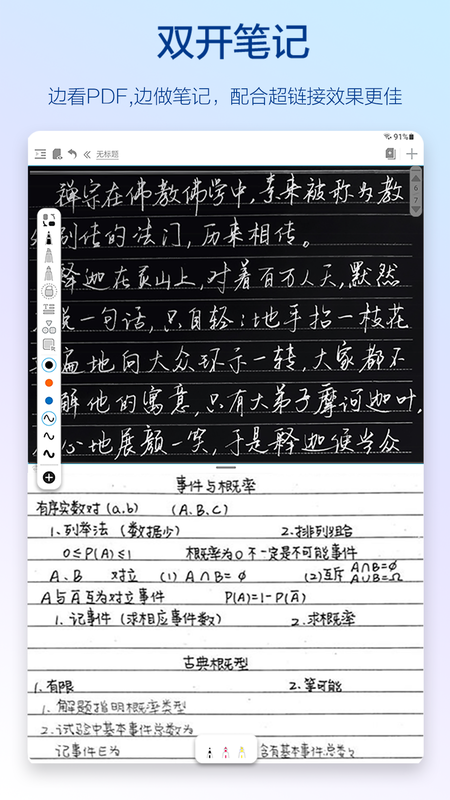 双开笔记
边看PDF,边做笔记，配合超链接效果更佳
91%
无标题
6
7
禅宗在佛教佛学中,素来被称为教
别传的法门,历来相传。
释迦在灵山上,对着百万人天,默然
说一句话,只自轻轻地手拈一枝花
遍地向大众环示一转,大家都不
解他的寓意,只有大弟子摩诃迦叶,
心地展颜一笑,于是释迦便当众
事件与概率
有序实数对 (a,b) (A.B.C)
1.列举法(数据少) 2.排列组合
0≤P(A)≤1 概率为0不一定是不可能事件
A、B 对立 (1) A∩B=∅ (2)互斥 A∩B=∅
A∪B=Ω
A与Ā互为对立事件 P(A)=1-P(Ā)
1. 记事件(求相应事件数) 2.求概率
古典概型
1.有限 2.等可能
1. 解题指明概率类型
2.试验中基本事件总数为
记事件E为 含有基本事件总数